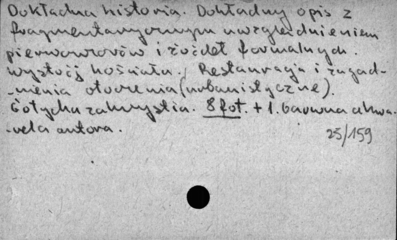 Dokładna historia. Dokładny opis z
fragmentarycznym uwzględnieniem
pierwowzorów i źródeł formalnych.
wystrój kościoła. Restauracja i zagad-
-nienia otoczenia (urbanistyczne).
Gotycka zakrystia. 8 fot. + 1. barwna akwa-
-rela autora.
25/159